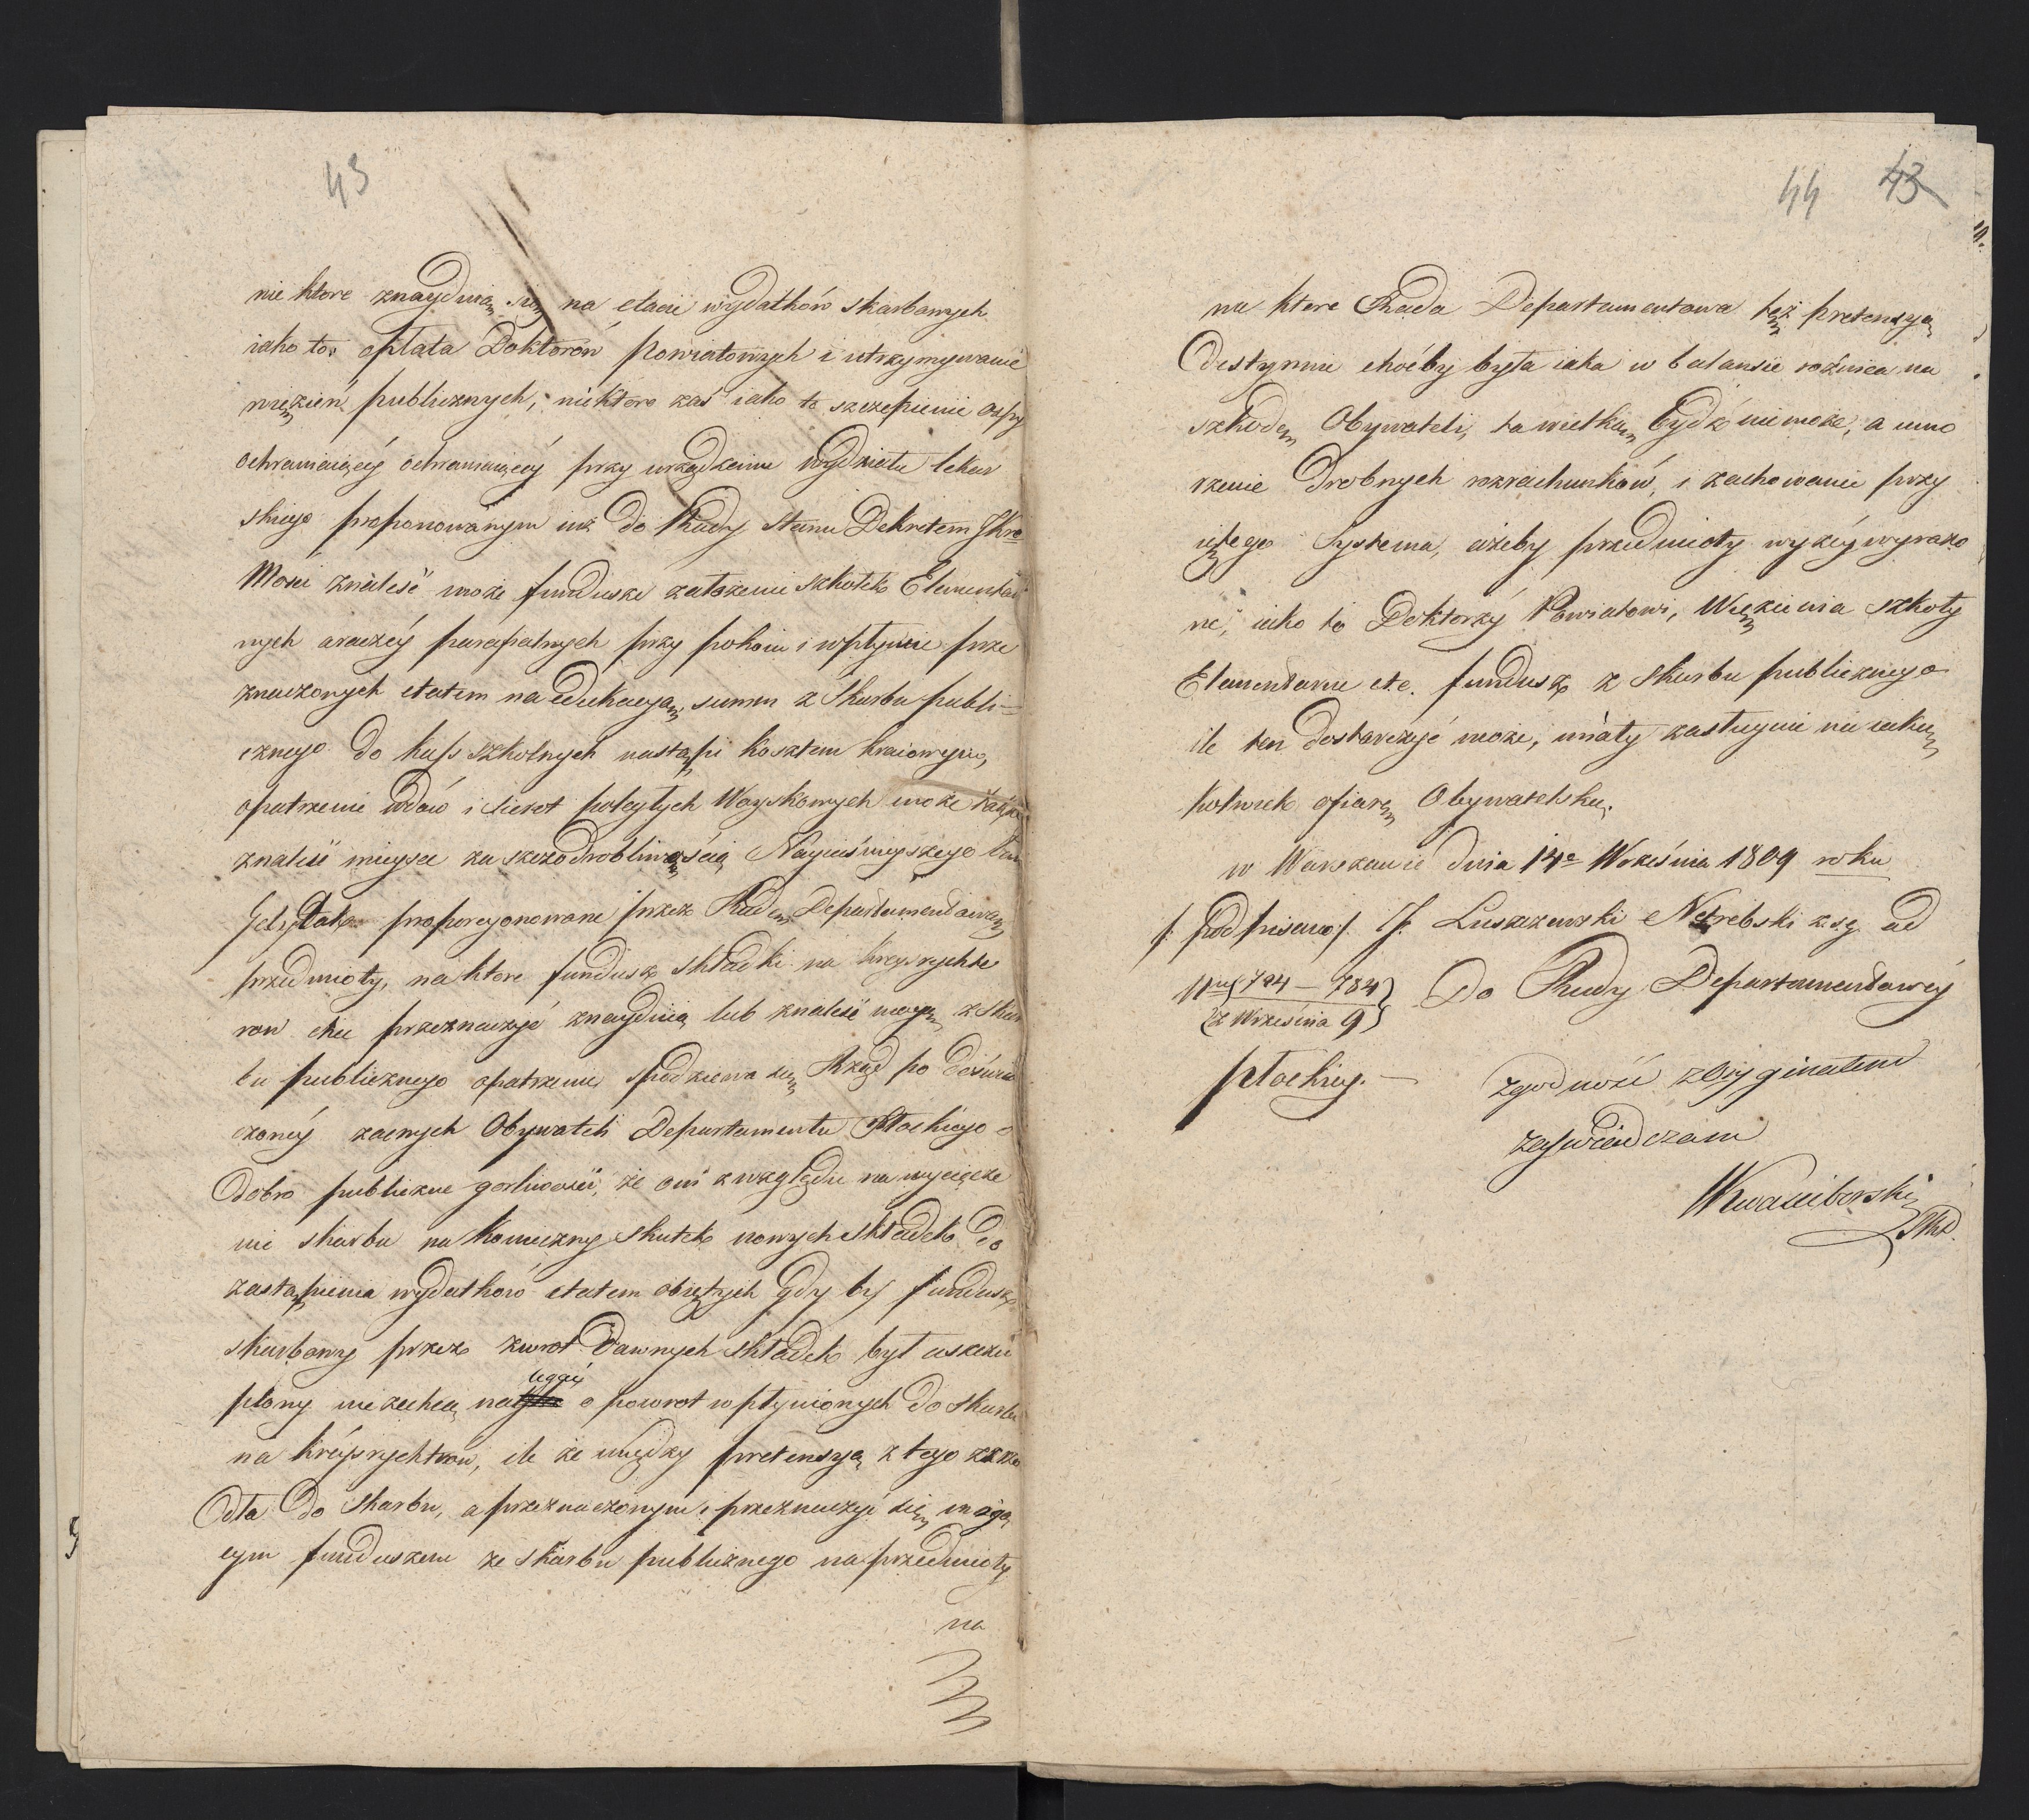 43
niektore znayduią się na etacie wydatków skarbowych
iako to: opłata Doktorów Powiatowych i utrzymywanie
więzień publicznych, niektore zaś iako to szczepienie Ospy
ochraniaiącéy ochraniaiącéy przy urządzeniu wydziału lekar
skiego proponowanym iuż do Rady Stanu Dekretem JKro
Mości znaleść może fundusze założenie szkołek Elementar
nych araczéy parafialnych przy pokoiu i wpłynie prze
znaczonych etatem na Edukacyą, summ z Skarbu publi-
cznego do kass szkolnych nastąpi kosztem kraiowym,
opatrzenie wdów i sierot poległych Woyskowych może także
znaleść mieysce za szczodrobliwością Nayiaśnieyszego Pana
Gdy tak proporcyonowane przez Radę Departamentową
przedmioty, na ktore fundusz składki na kreysrychte
row chce przeznaczyć znayduią lub znaleść mogą z Skar
bu publicznego opatrzenie, spodziewa się Rząd po doświad
czonéy zacnych Obywateli Departamentu Płockiego o
Dobro publiczne gorliwości, że oni zwzględu na wycięcze
nie skarbu na konieczny skutek nowych składek do
zastąpienia wydatków etatem obiętych gdy by fundusz
skarbowy przez zwrot dawnych składek był uszczu
plony niezechcą nalegać o powrot wpłynionych do skarbu
na kréysrychtrow, ile że między pretensyą z tego źrzo
dła do Skarbu, a przeznaczonym i przeznaczyć się maią
cym funduszem ze skarbu publicznego na przedmioty
na
44 43
na ktore Rada Departamentowa też pretensyą
Destynuie choćby była iaka w balansie rożnica na
szkodę Obywateli, ta wielką bydź niemoże, a umo
rzenie drobnych rozrachunków, i zachowanie przy
iętego Systema, ażeby przedmioty wyżéy wyrażo
ne, iako to Doktorzy Powiatowi, Więzienia szkoły
Elementarne etc. fundusz z Skarbu publicznego
ile ten dostarczyć może, miały zasługuie na iaką
kolwiek ofiarę Obywatelską.
w Warszawie dnia 14e Września 1809 roku
/: podpisano :/ J. Łuszczewski Nekrebski z.s.g. ad
Nru 794 – 784 Do Rady Departamentowéy
z Września 9
Płockiey. –
zgodność z Oryginałem
zaświadczam